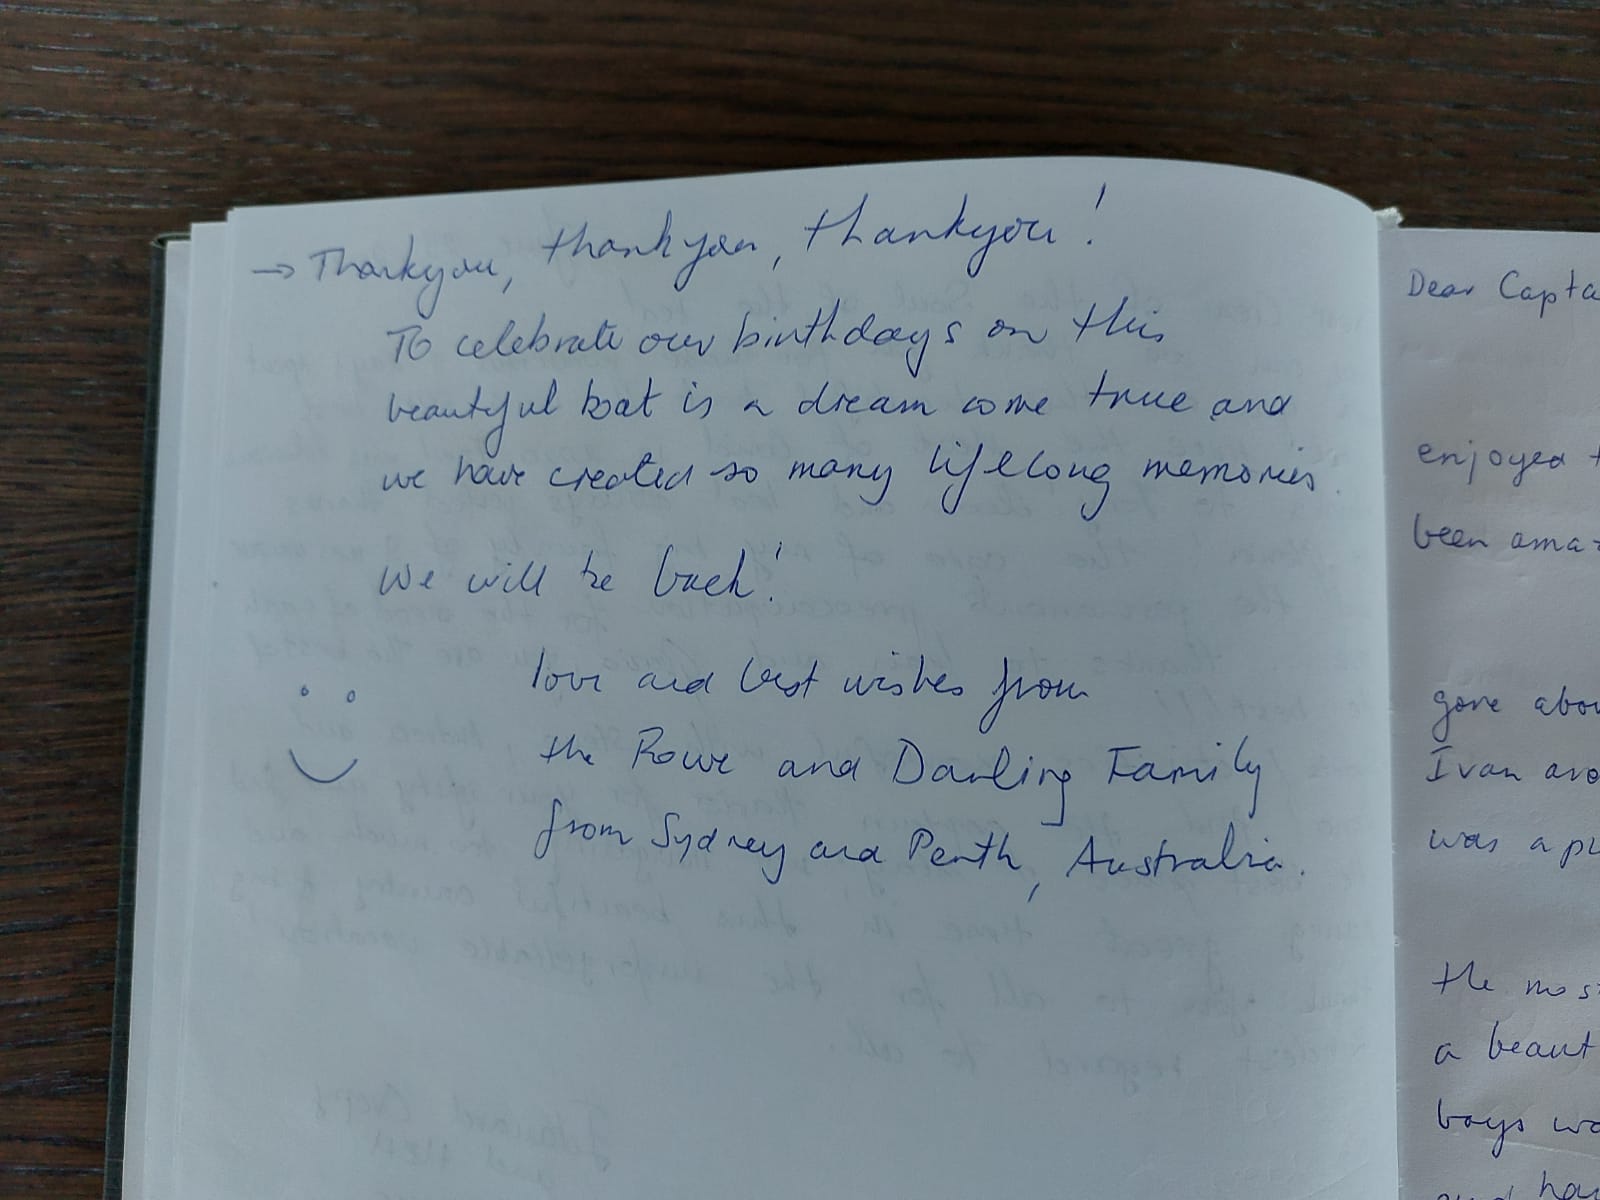 → Thankyou, thankyou, thankyou!
To celebrate our birthdays on this
beautiful boat is a dream come true and
we have created so many lifelong memories.
We will be back!
love and best wishes from
the Rowe and Darling Family
from Sydney and Perth, Australia.
Dear Capta
enjoyed t
been ama
gone abou
Ivan and
was a pl
the mos
a beaut
boys wo
and ha